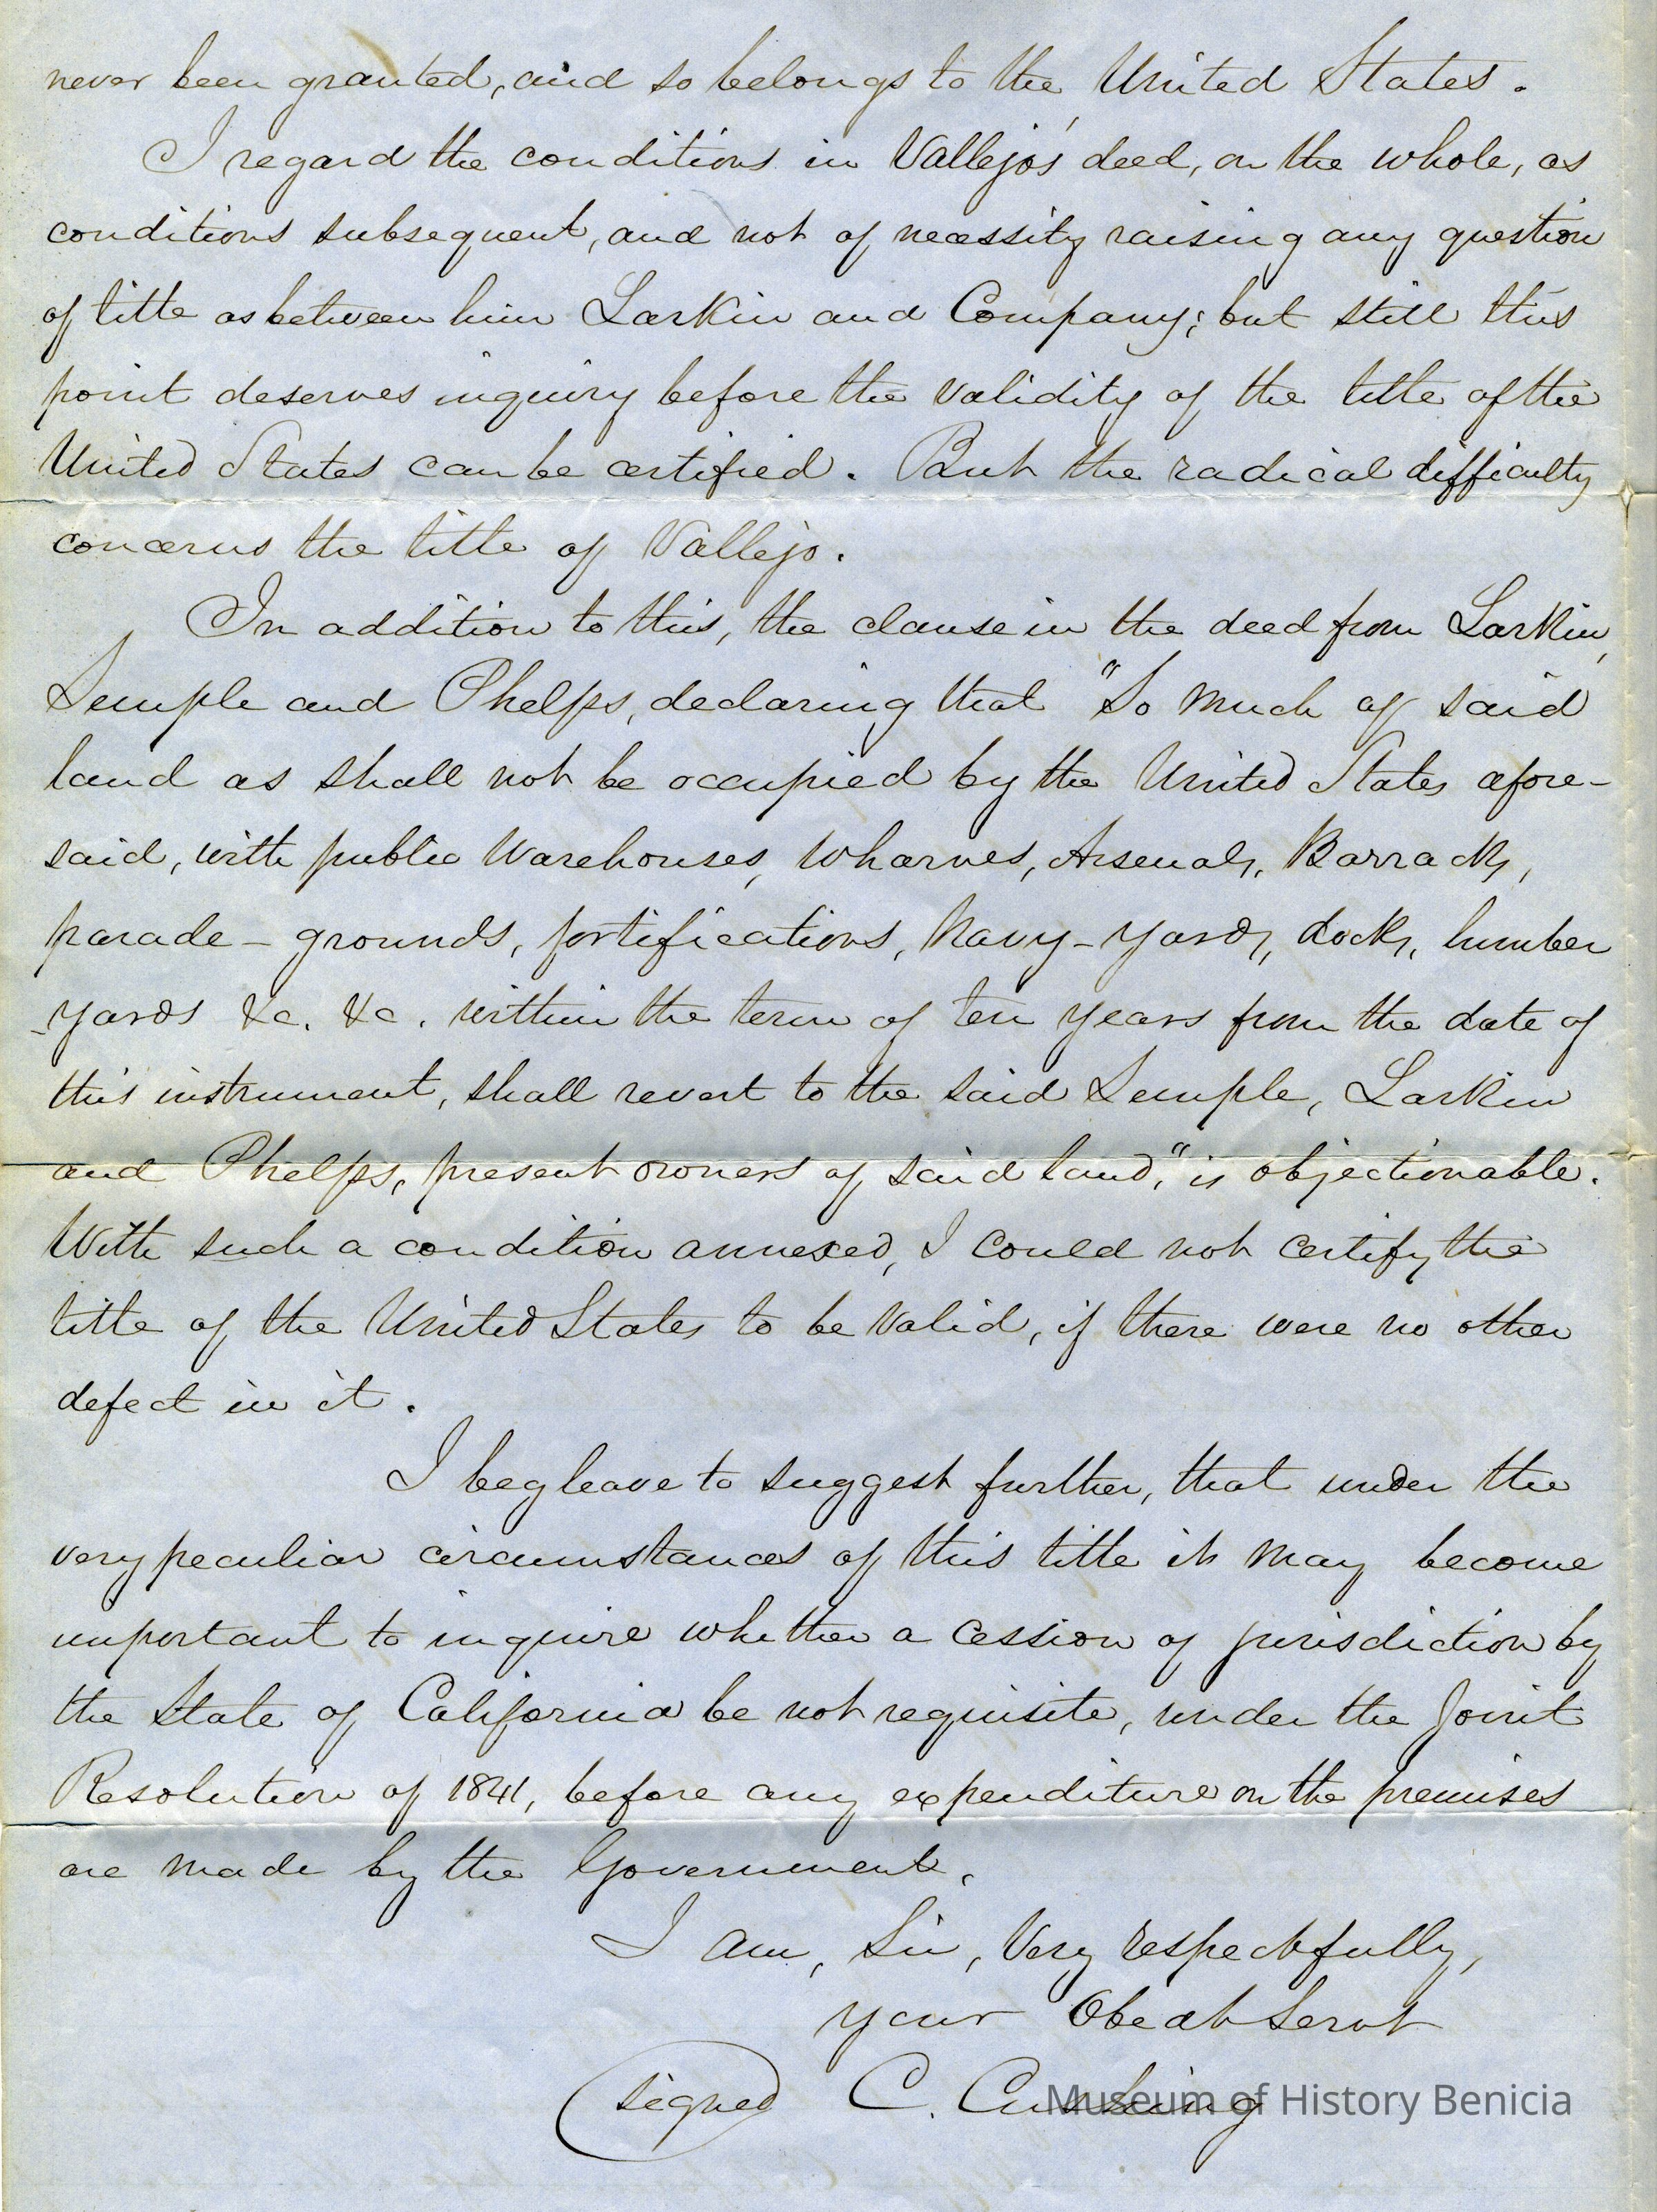 never been granted, and so belongs to the United States.
I regard the conditions in Vallejo's deed, on the whole, as
conditions subsequent, and not of necessity raising any question
of title as between him Larkin and Company; but still this
point deserves inquiry before the validity of the title of the
United States can be certified. But the radical difficulty
concerns the title of Vallejo.
In addition to this, the clause in the deed from Larkin,
Semple and Phelps, declaring that "So much of said
land as shall not be occupied by the United States afore-
said, with public Warehouses, Wharves, Arsenals, Barracks,
parade-grounds, fortifications, Navy-Yards, docks, lumber
-yards &c. &c. within the term of ten years from the date of
this instrument, shall revert to the said Semple, Larkin
and Phelps, present owners of said land," is objectionable.
With such a condition annexed, I could not certify the
title of the United States to be valid, if there were no other
defect in it.
I beg leave to suggest further, that under the
very peculiar circumstances of this title it may become
important to inquire whether a cession of jurisdiction by
the State of California be not requisite, under the Joint
Resolution of 1841, before any expenditure on the premises
are made by the Government.
I am, Sir, Very respectfully,
your Obedt Servt
(signed) C. Cushing
Museum of History Benicia